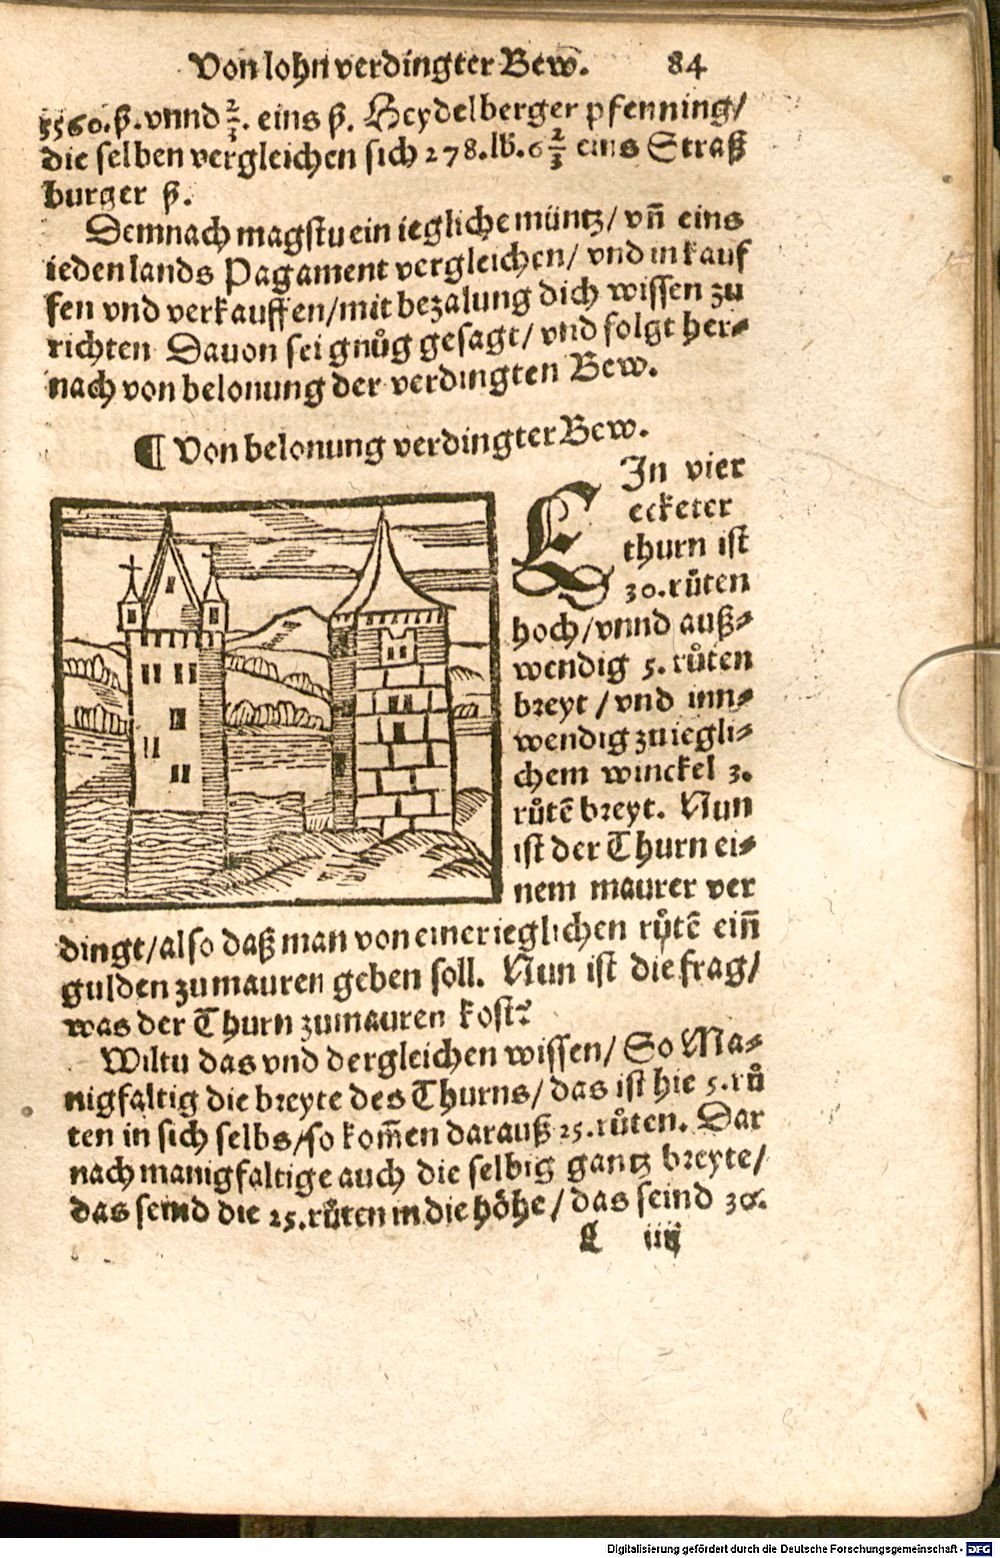 Von lohn verdingter Bew̄. 84
5560.ß.vnnd 2/3. eins ß. Heydelberger pfenning/
die selben vergleichen sich 278.lb.6 2/3 eins Straß
burger ß.
Demnach magstu ein iegliche müntz/ vn̄ eins
ieden lands Pagament vergleichen/ vnd in kauf
fen vnd verkauffen/mit bezalung dich wissen zu
richten Dauon sei gnůg gesagt/ vnd folgt her⸗
nach von belonung der verdingten Bew.
¶ Von belonung verdingter Bew.
EIn vier
ecketer
thurn ist
30.růten
hoch/vnnd auß⸗
wendig 5. růten
breyt / vnd inn⸗
wendig zu iegli⸗
chem winckel 3.
růtē breyt. Nun
ist der Thurn ei⸗
nem maurer ver
dingt/also daß man von einer ieglichen růtē ein̄
gulden zumauren geben soll. Nun ist die frag/
was der Thurn zumauren kost?
Wiltu das vnd dergleichen wissen/ So Ma⸗
nigfaltig die breyte des Thurns/ das ist hie 5.rů
ten in sich selbs/so kom̄en darauß 25.růten. Dar
nach manigfaltige auch die selbig gantz breyte/
das seind die 25.růten in die höhe/ das seind 30.
L iiij
Digitalisierung gefördert durch die Deutsche Forschungsgemeinschaft - DFG